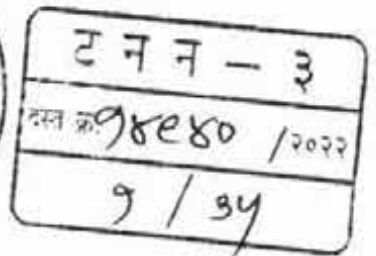 ट न न - ३
दस्त क्र. १४९४० /२०२२
१ / ३५